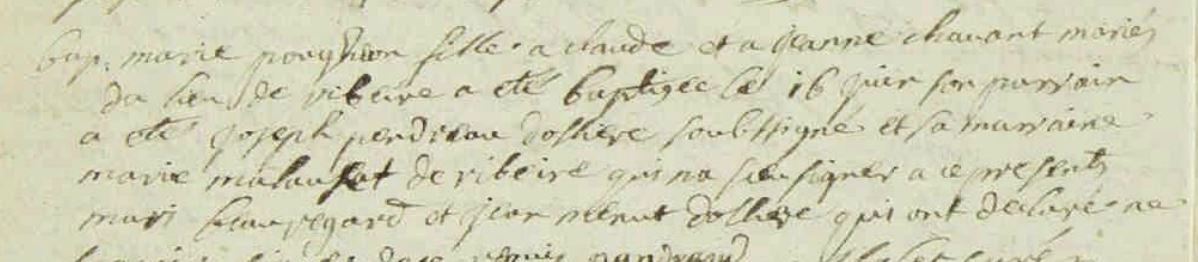 bap. marie poughon fille a claude et a jeanne chavant mariés
du lieu de ribeire a eté baptizée le 16 juin son parrain
a eté joseph perdreau dolliere soubssigné et sa marraine
marie malausat de ribeire qui na sceu signer a ce presents
mari beauregard et jean menut dolliere qui ont declaré ne
curé